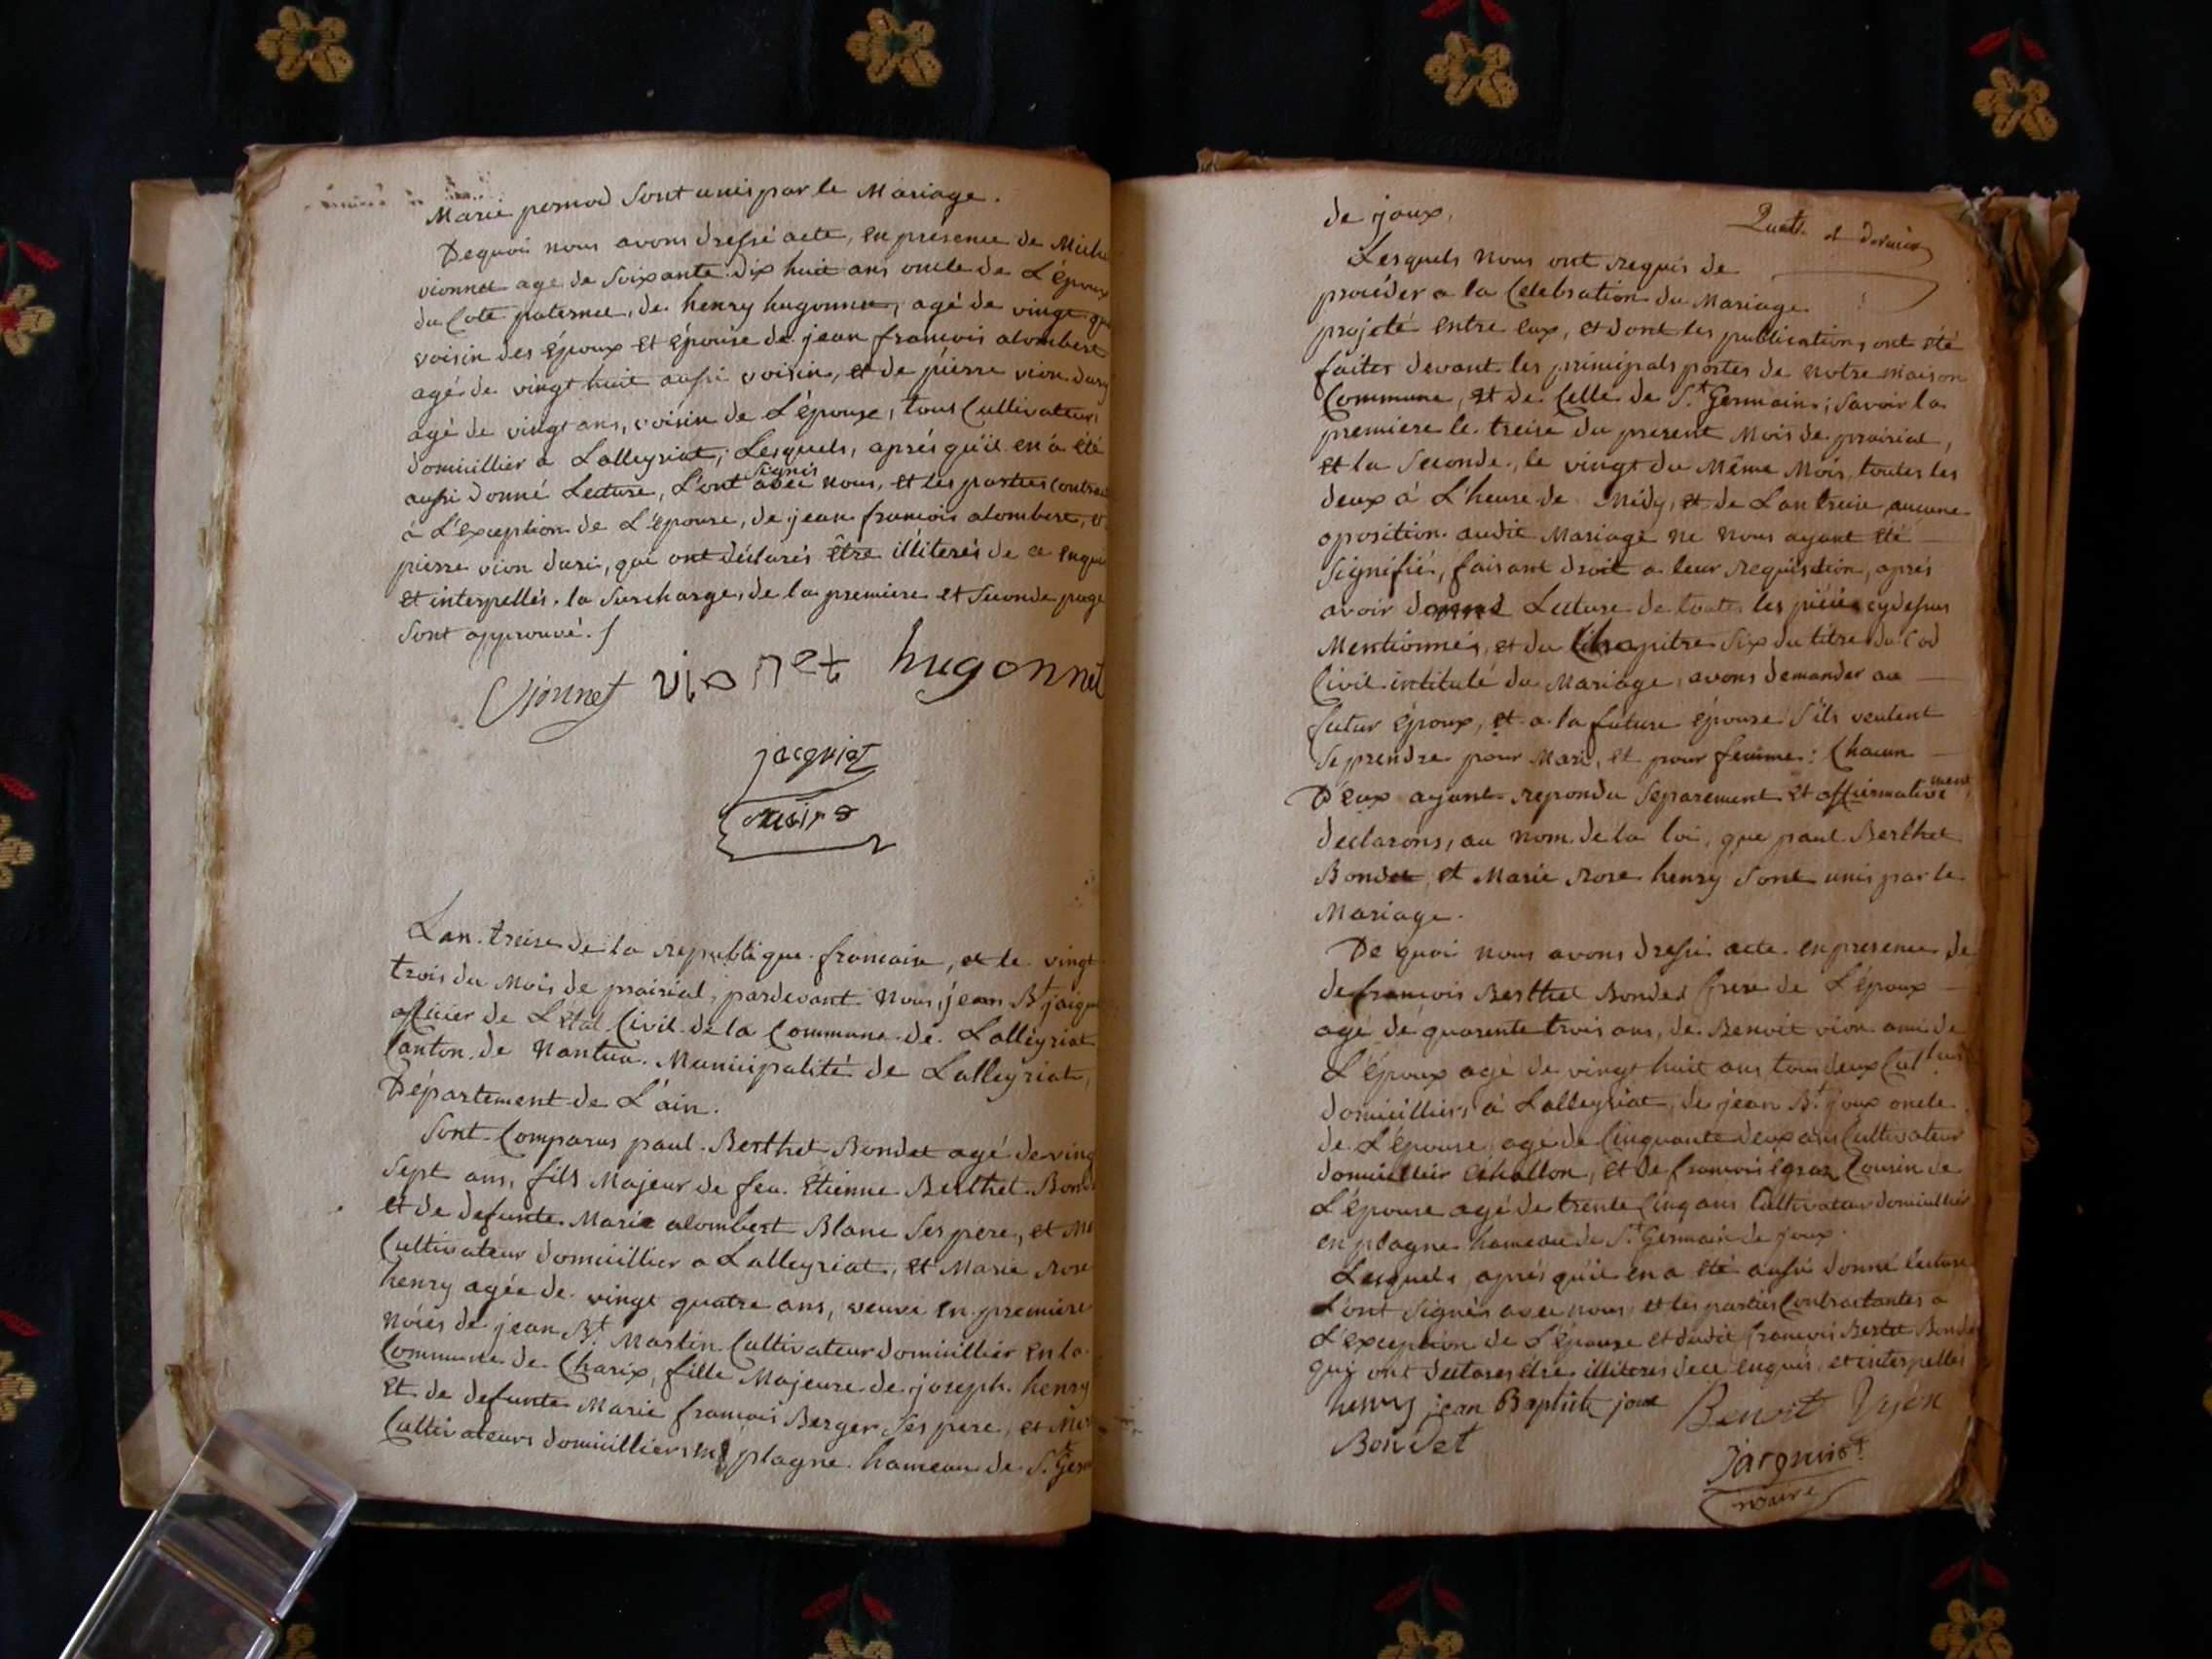 Marie pernod Sont unis par le Mariage.
Dequoi nous avons dressé acte, en presence de Miche
vionnet age de Soixante dix huit ans oncle de L'époux
du Coté paternel, de henry hugonnet, agé de vingt
voisin des époux et épouse de jean francois alombert
agé de vingt huit aussi voisin, et de pierre vion dury
agé de vingt ans, voisin de L'épouse, tous Cultivateurs
domicillier a Lalleyriat, Lesquels, aprés qu'il en à été
aussi donné Lecture, L'ont Signés avec nous, et les parties contrac
à L'exception de L'épouse, de jean francois alombert,
pierre vion duri, qui ont déclarés être illiterés de ce enqui
et interpellés. la Surcharge, de la premiere et Seconde page
Sont approuvé.
Vjonnet vionet hugonnet
jacquiot
maire
Lan treise de la republique francaise, et le vingt
trois du Mois de prairial, pardevant Nous, jean Bt jaiqu
officier de L'état Civil de la Commune de Lalleyriat
Canton de Nantua Municipalité de Lalleyriat,
Département de L'ain.
Sont Comparus paul Berthet Bondet agé de ving
Sept ans, fils Majeur de feu Etienne Berthet Bond
et de defunte Marie alombert Blanc Ses pere, et Me
Cultivateur domicillier a Lalleyriat, et Marie rose
henry agée de vingt quatre ans, veuve en premiere
nôies de jean Bt Martin Cultivateur domicillier en la
Commune de Charix, fille Majeure de joseph henry
et de defunte Marie francois Berger Ses pere, et Mer
Cultivateurs domicilliers plagne hameau de St Germ
de joux,
Quatre et dernier
Lesquels nous ont requis de
procéder a la Célebration du Mariage
projeté entre eux, et dont les publications ont été
faites devant les principals portes de notre maison
Commune, et de Celle de St Germain; Savoir la
premiere le treise du present Mois de prairial,
et la Seconde, le vingt du Même Mois, toutes les
deux à L'heure de Midy, et de Lan treise, aucune
oposition audit Mariage ne nous ayant été
Signifié, faisant droit a leur requisition, aprés
avoir donné Lecture de toutes les piéces cydessus
Mentionnés, et du Chapitre Six du titre du Cod
Civil intitulé du Mariage, avons demander au
futur époux, et a la future épouse S'ils veulent
Se prendre pour Mari, et pour femme: Chacun
D'eux ayant repondu Separement et affirmativement,
declarons, au nom de la loi, que paul Berthet
Bondet, et Marie rose henry Sont unis par le
Mariage.
De quoi nous avons dressé acte en presence de
de francois Berthet Bondet frere de L'époux
agé de quarente trois ans, de Benoit vion ami de
L'époux agé de vingt huit ans tous deux
domicilliers à Lalleyriat, de jean Bt joux oncle
de L'épouse agé de Cinquante deux ans Cultivateur
domicillier Echallon, et de francois égraz Cousin de
L'épouse agé de trente Cinq ans Cultivateur domicillier
en plagne hameau de St Germain de joux.
Lesquels aprés qu'il en a été aussi donné lecture
L'ont Signés avec nous et les parties Contractantes a
L'exception de L'épouse et dudit francois Bertet Bondet
qui ont declarés etre illiterés de ce enquis, et interpellés
henry jean Baptiste joux Benoit Vyon
Bondet
Jacquiot
maire